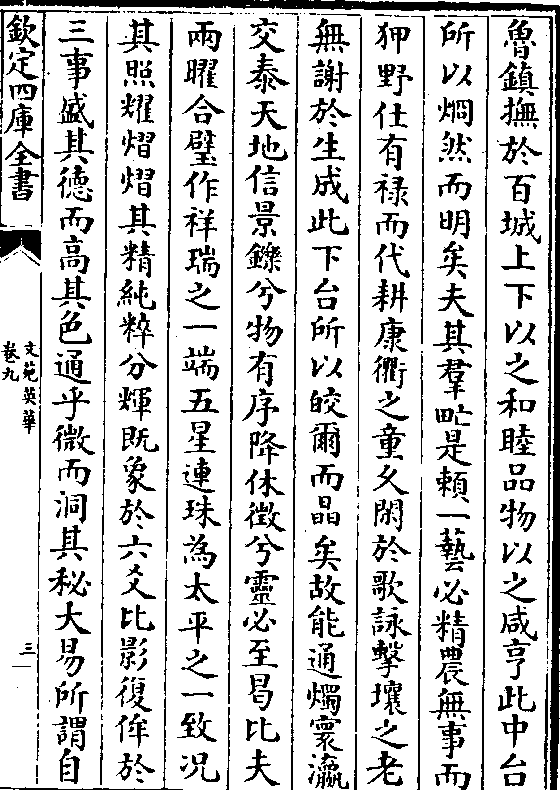 魯鎮撫於百城上下以之和睦品物以之咸亨此中台
所以烱然而明矣夫其羣甿是頼一藝必精農無事而
狎野仕有禄而代耕康衢之童久閑於歌詠擊壤之老
無謝於生成此下台所以皎爾而晶矣故能通燭寰瀛
交泰天地信景鑠兮物有序降休徵兮靈必至曷比夫
兩曜合璧作祥瑞之一端五星連珠為太平之一致况
其照燿熠熠其精純粹分輝既象於六爻比影復侔於
三事盛其德而高其色通乎微而洞其秘大易所謂自
欽定四庫全書
文苑英華
卷九
三